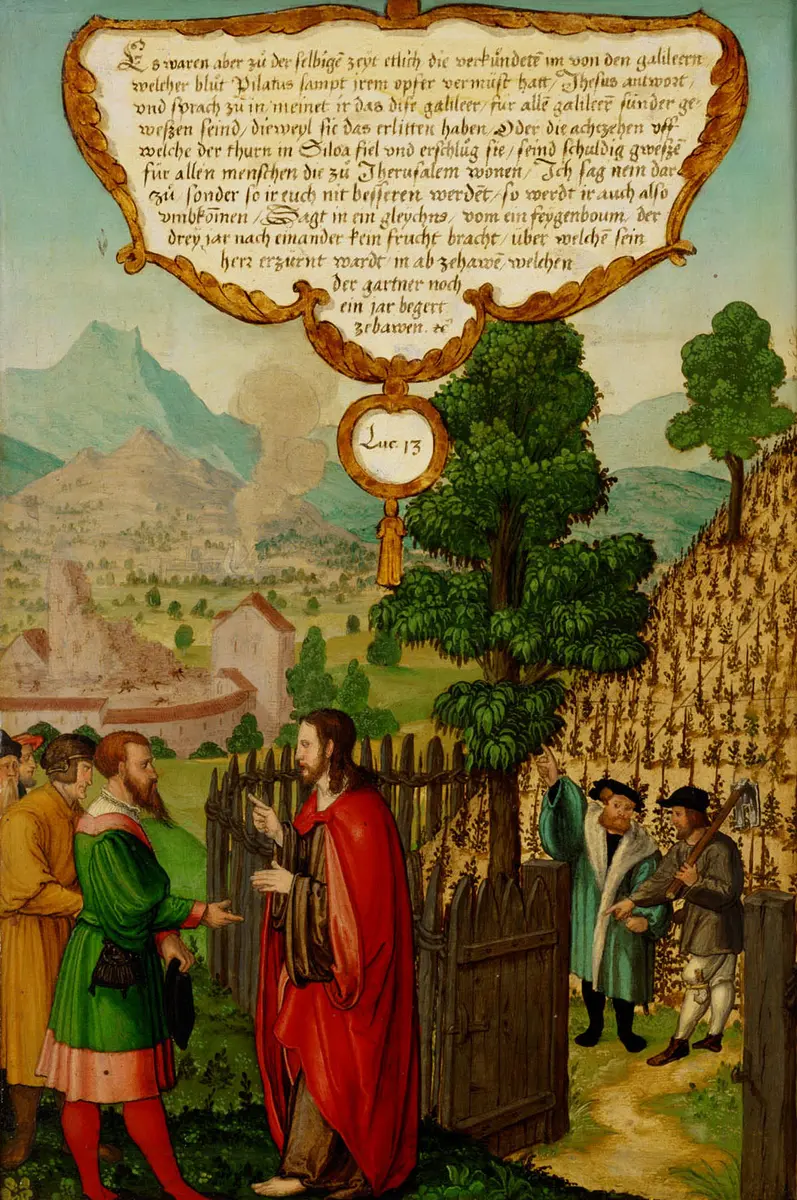 Es waren aber zů der selbigẽ zeyt etlich die verkůndetẽ im von den galileern
welcher blůt Pilatus sampt jrem opfer vermüst hatt / Jhesus antwort /
vnd sprach zů in / meinet ir das dise galileer / für allẽ galileeñ sünder ge-
weszen seind / die weyl sie das erlitten haben / Oder die achtzehen vff
welche der thurn in Siloa fiel vnd erschlůg sie / seind schuldig gweszẽ
für allen menschen die zů Jherusalem wonen / Ich sag nein dar
zů sonder so ir euch nit besseren werdẽt / so werdt ir auch also
vmbkõmen / Sagt in ein gleychns / vom ein feygenboum / der
drey jar nach einander kein frucht bracht / über welchẽ sein
herr erzürnt wardt in ab zehawẽ / welchen
der gartner noch
ein jar begert
zebawen. ꝛc̃
Luc. 13